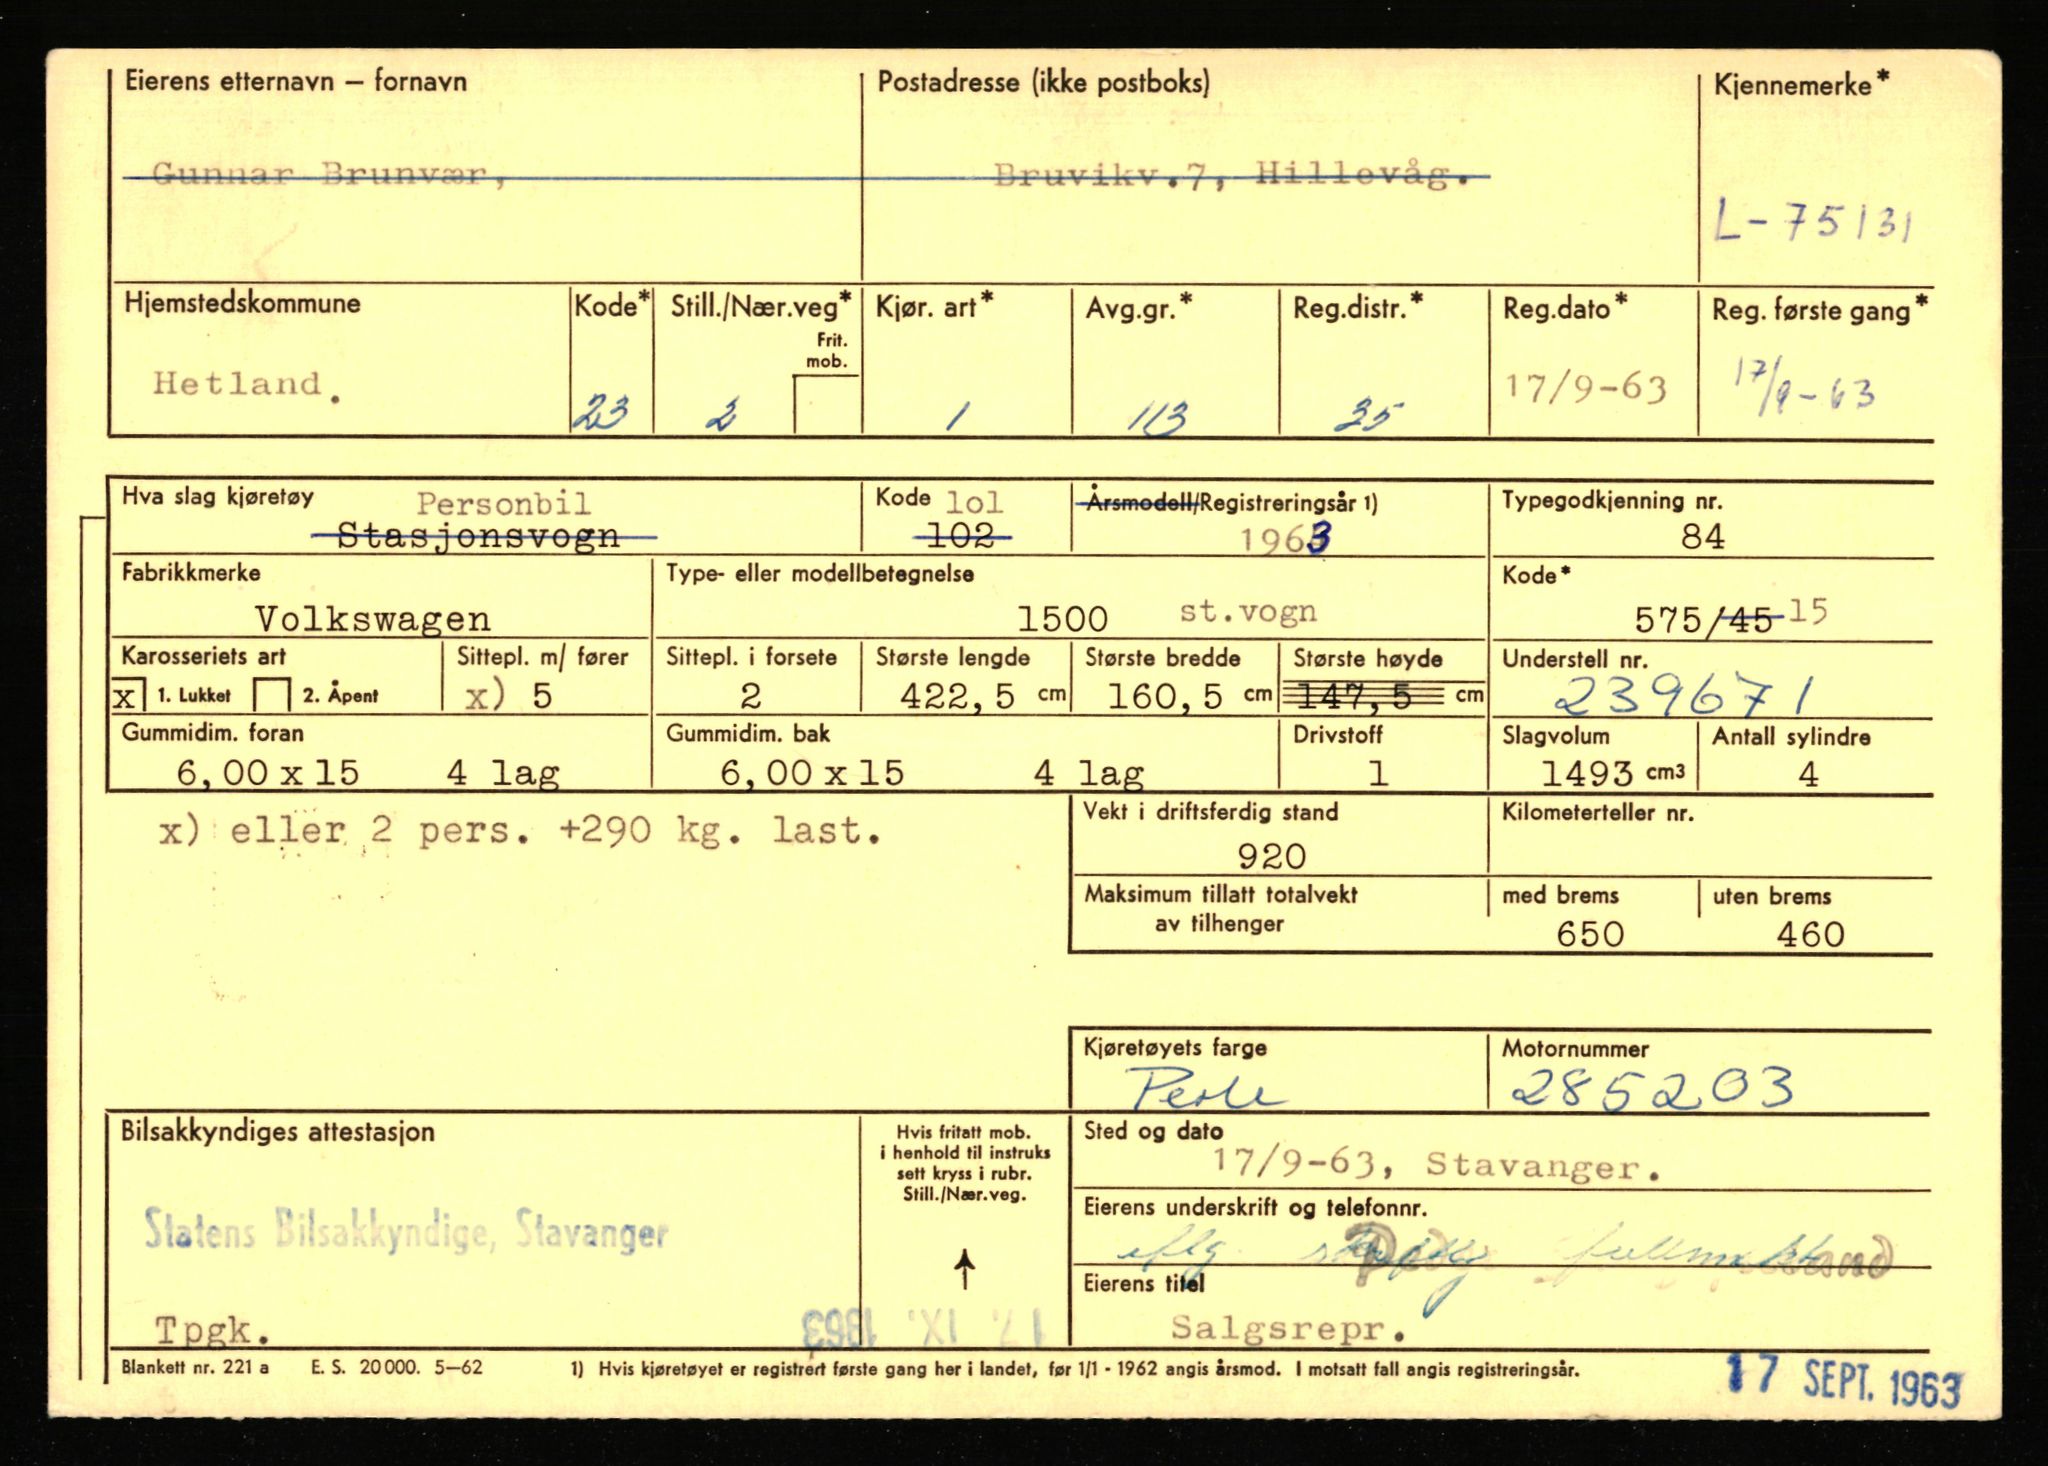 Eierens etternavn – fornavn
Postadresse (ikke postboks)
Kjennemerke*
Gunnar Brunvær,
Bruvikv.7, Hillevåg.
L-75131
Hjemstedskommune
Kode*
Still./Nær.veg*
Frit.
mob.
Kjør. art*
Avg.gr.*
Reg.distr.*
Reg.dato*
Reg. første gang*
Hetland.
23
2
1
113
35
17/9-63
17/9-63
Hva slag kjøretøy
Personbil
Stasjonsvogn
Kode lol
102
Årsmodell/Registreringsår 1)
1963
Typegodkjenning nr.
84
Fabrikkmerke
Volkswagen
Type- eller modellbetegnelse
1500 st.vogn
Kode*
575/45 15
Karosseriets art
x 1. Lukket 2. Åpent
Sittepl. m/ fører
x) 5
Sittepl. i forsete
2
Største lengde
422,5 cm
Største bredde
160,5 cm
Største høyde
147,5 cm
Understell nr.
239671
Gummidim. foran
6,00 x 15 4 lag
Gummidim. bak
6,00 x 15 4 lag
Drivstoff
1
Slagvolum
1493 cm3
Antall sylindre
4
x) eller 2 pers. +290 kg. last.
Vekt i driftsferdig stand
920
Kilometerteller nr.
Maksimum tillatt totalvekt
av tilhenger
med brems
650
uten brems
460
Kjøretøyets farge
Perle
Motornummer
285203
Bilsakkyndiges attestasjon
Statens Bilsakkyndige, Stavanger
Tpgk.
17. IX. 1963
Hvis fritatt mob.
i henhold til instruks
sett kryss i rubr.
Still./Nær.veg.
Sted og dato
17/9-63, Stavanger.
Eierens underskrift og telefonnr.
iflg skriftlig fullmakt
Eierens titel
Salgsrepr.
Blankett nr. 221 a E. S. 20000. 5–62
1) Hvis kjøretøyet er registrert første gang her i landet, før 1/1 - 1962 angis årsmod. I motsatt fall angis registreringsår.
17 SEPT. 1963